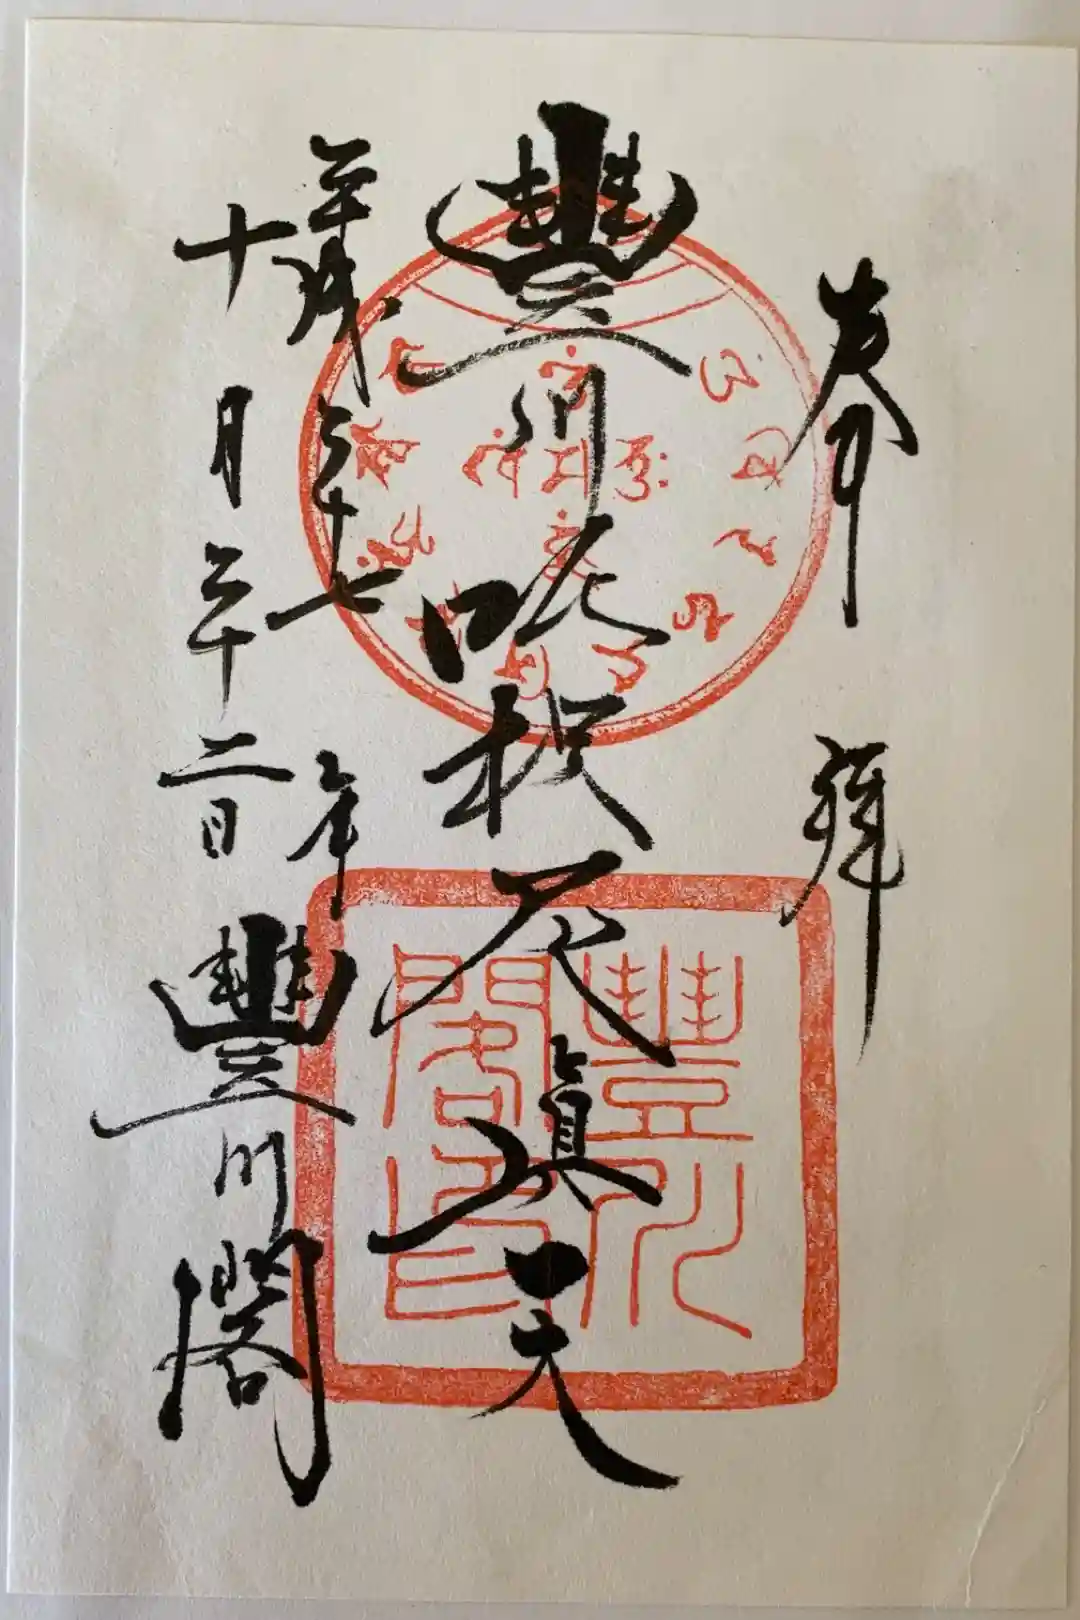 奉拝
豐川吒枳尼眞天
平成二十七年
十月二十二日
豐川閣
豐川閣印